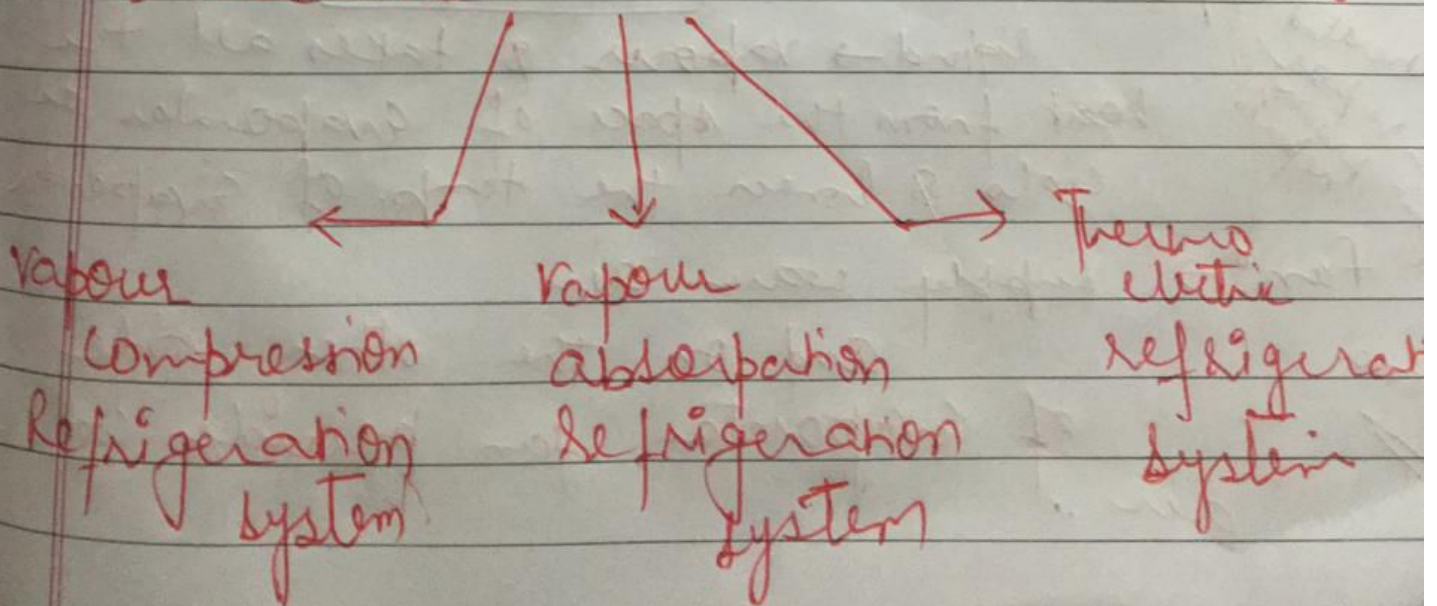 Vapour
Compression
Refrigeration
system
Vapour
absorbation
Refrigeration
system
Thermo
electric
refrigerat
system